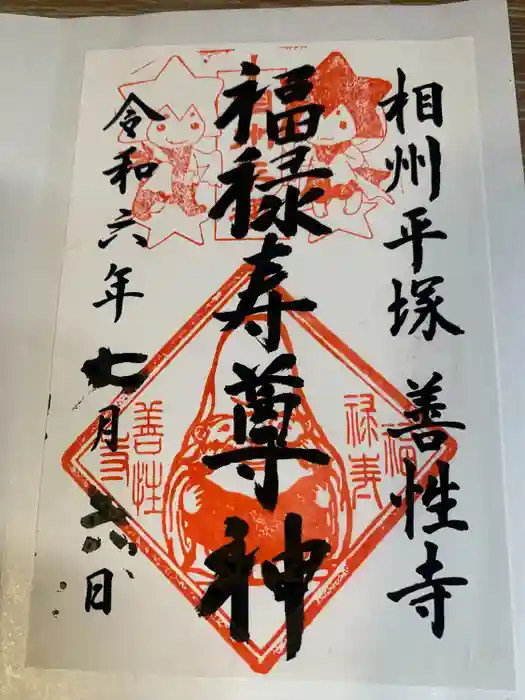 相州平塚 善性寺
福禄寿尊神
令和六年七月六日
福禄寿
善性寺